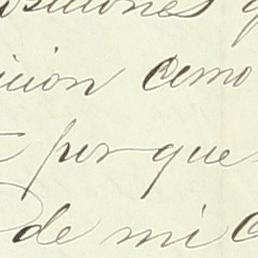 osiciones q
icion como
por que
de mi C